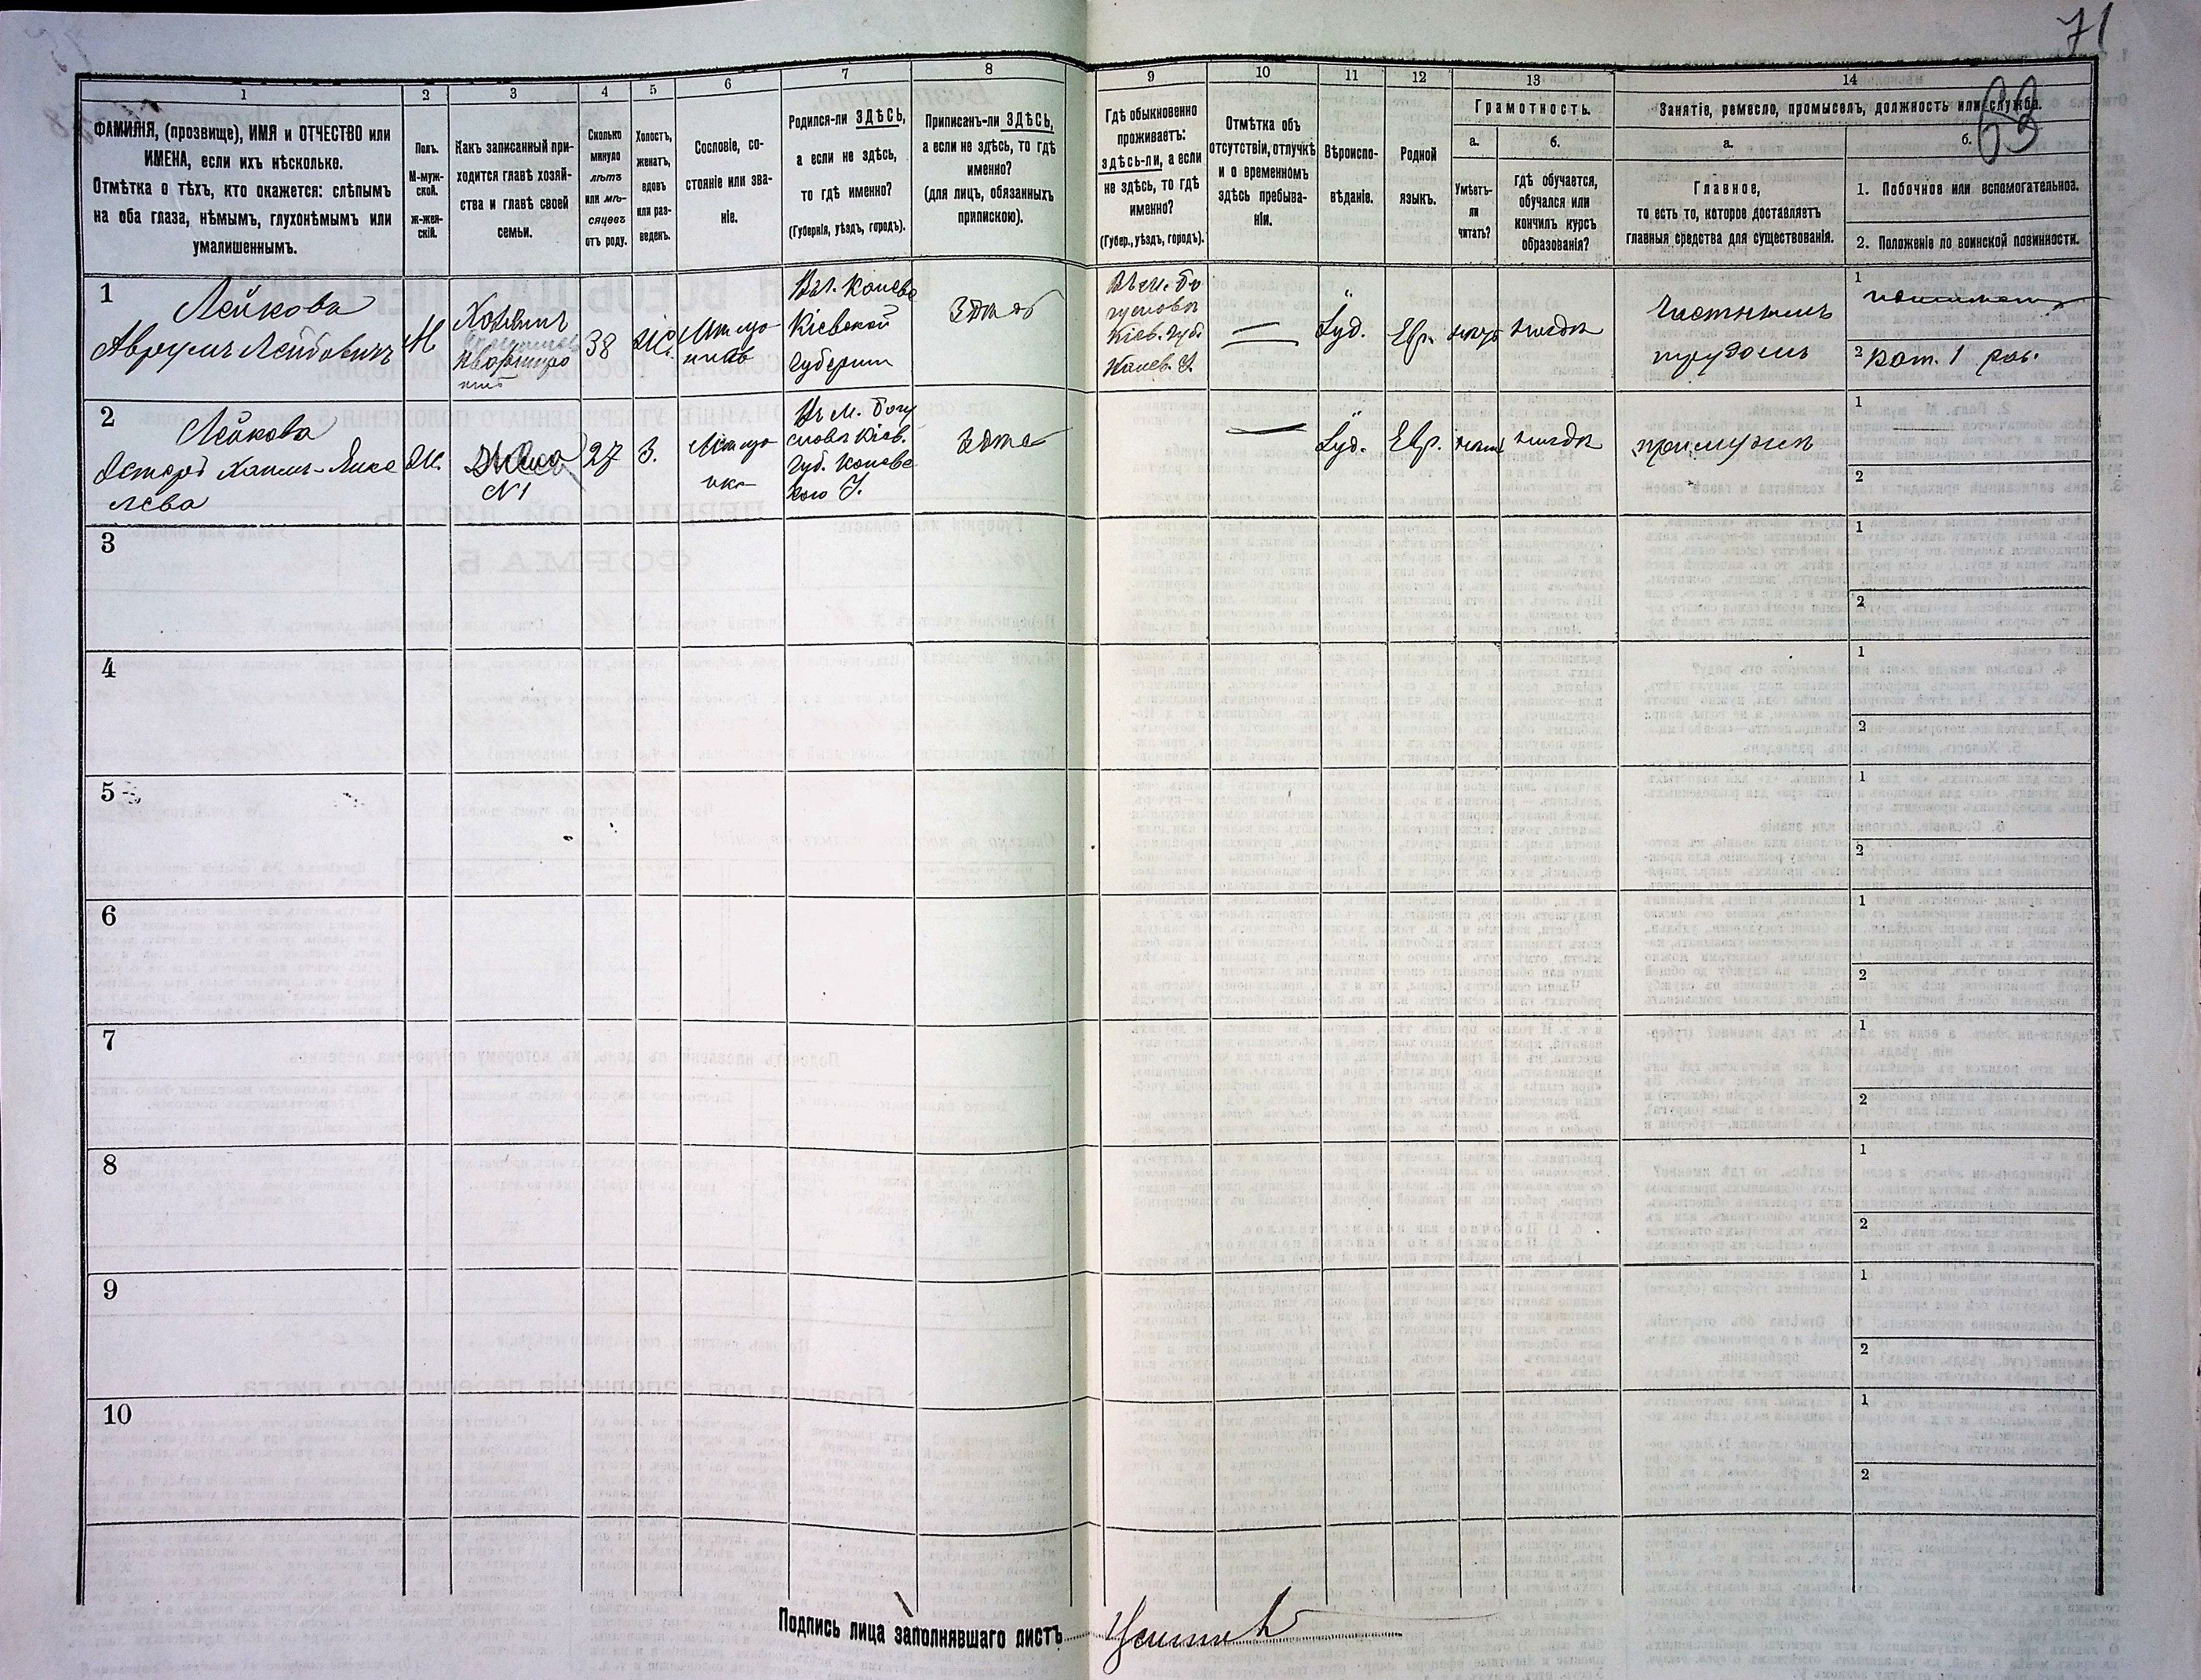 71
63
1
2
3
4
5
6
7
8
9
10
11
12
13
14
ФАМИЛІЯ, (прозвище), ИМЯ и ОТЧЕСТВО или
ИМЕНА, если ихъ нѣсколько.
Отмѣтка о тѣхъ, кто окажется: слѣпымъ
на оба глаза, нѣмымъ, глухонѣмымъ или
умалишеннымъ.
Полъ.
М-муж-
ской.
Ж-жен-
скій.
Какъ записанный при-
ходится главѣ хозяй-
ства и главѣ своей
семьи.
Сколько
минуло
лѣтъ
или мѣ-
сяцевъ
отъ роду.
Холостъ,
женатъ,
вдовъ
или раз-
веденъ.
Сословіе, со-
стояніе или зва-
ніе.
Родился-ли ЗДѢСЬ,
а если не здѣсь,
то гдѣ именно?
(Губернія, уѣздъ, городъ).
Приписанъ-ли ЗДѢСЬ,
а если не здѣсь, то гдѣ
именно?
(для лицъ, обязанныхъ
припискою).
Гдѣ обыкновенно
проживаетъ:
здѣсь-ли, а если
не здѣсь, то гдѣ
именно?
(Губер., уѣздъ, городъ).
Отмѣтка объ
отсутствіи, отлучкѣ
и о временномъ
здѣсь пребыва-
ніи.
Вѣроиспо-
вѣданіе.
Родной
языкъ.
Грамотность.
а.
Умѣетъ-
ли
читать?
б.
гдѣ обучается,
обучался или
кончилъ курсъ
образованія?
Занятіе, ремесло, промыселъ, должность или служба.
а.
Главное,
то есть то, которое доставляетъ
главныя средства для существованія.
б.
1. Побочное или вспомогательное.
2. Положеніе по воинской повинности.
1
Лейкова
Аврумъ Лейбовичъ
М
Хозяинъ
38
Ж.
Кіевской
Губерніи
Кіев. Губ.
Канев. У
—
Іуд.
Евр.
Частнымъ
трудомъ
1
2
Рат. 1 раз.
2
Лейкова
Ж.
Жена
№1
27
З.
Въ М. Богу
слова Кіев.
Губ. Канев
кого У.
—
Іуд.
Евр.
при мужѣ
1
2
3
1
2
4
1
2
5
1
2
6
1
2
7
1
2
8
1
2
9
1
2
10
1
2
Подпись лица заполнявшаго листъ